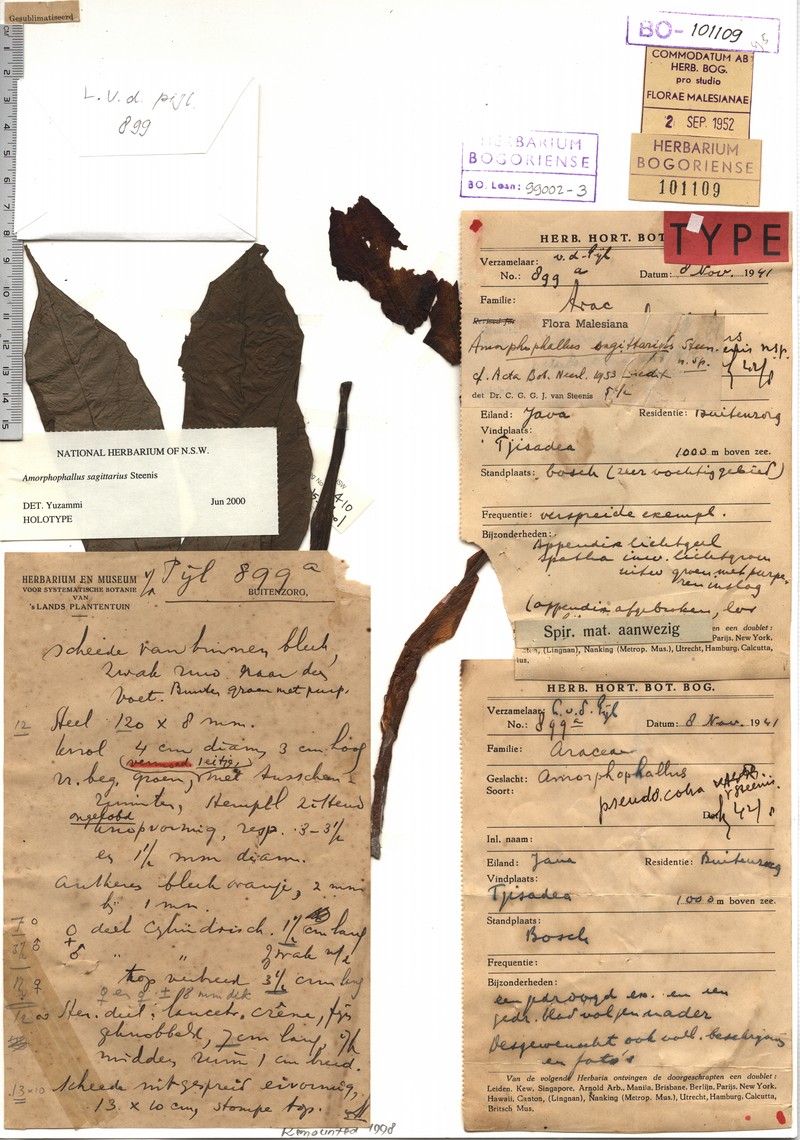 Gesublimatiseerd
L. v. d. pijl.
899
BO-101109
COMMODATUM AB
HERB. BOG.
pro studio
FLORAE MALESIANAE
2 SEP. 1952
HERBARIUM
BOGORIENSE
BO. Loan: 99002-3
HERBARIUM
BOGORIENSE
101109
HERB. HORT. BOT
TYPE
Verzamelaar: v. d. Pijl
No.: 899 a Datum: 8 Nov. 1941
Familie: Arac
Flora Malesiana
Amorphophallus sagittarius Steenis n.sp.
cf. Acta Bot. Neerl. 1953
det Dr. C. G. G. J. van Steenis
Eiland: Java Residentie: Buitenzorg
Vindplaats:
Tjisadea 1000 m boven zee.
Standplaats: bosch (zeer vochtig gebied)
Frequentie: verspreide exempl.
Bijzonderheden:
Appendix lichtgeel
Spatha inw. lichtgroen
uitw groen met purpe-
ren inslag
(appendix afgebroken, los
Spir. mat. aanwezig
en een doublet:
Parijs. New York,
(Lingnan), Nanking (Metrop. Mus.), Utrecht, Hamburg, Calcutta,
ius.
NATIONAL HERBARIUM OF N.S.W.
Amorphophallus sagittarius Steenis
DET. Yuzammi Jun 2000
HOLOTYPE
HERBARIUM EN MUSEUM
VOOR SYSTEMATISCHE BOTANIE
VAN
'S LANDS PLANTENTUIN
v/d Pijl 899 a
BUITENZORG,
scheede van binnen bleek,
zwak naar den
voet. Buiten groen met purp.
12 Steel 120 x 8 mm.
knol 4 cm diam, 3 cm hoog
vr. beg. groen, met tusschen-
ruimten, Stempel zittend
ongelobd
knopvormig, resp. 3-3½
en 1½ mm diam.
antheren bleek oranje, 2 mm
bij 1 mm.
♀ deel cylindrisch. 1½ cm lang
♂ " " zwak
top verbreed 3½ cm lang
Ster. deel: lancetv. crême, fijn
geknobbeld, 7 cm lang, i/h
midden ruim 1 cm breed.
13 x 10 Scheede uitgespreid eivormig,
13 x 10 cm, stompe top.
Remounted 1998
HERB. HORT. BOT. BOG.
Verzamelaar: L. v. d. Pijl
No.: 899 a Datum: 8 Nov. 1941
Familie: Araceae
Geslacht: Amorphophallus
Soort:
Inl. naam:
Eiland: Java Residentie: Buitenzorg
Vindplaats:
Tjisadea 1000 m boven zee.
Standplaats:
Bosch
Frequentie:
Bijzonderheden:
een gedroogd ex. en een
gedr. blad volgen nader
Desgewenscht ook voll. beschrijving
en foto's
Van de volgende Herbaria ontvingen de doorgeschrapten een doublet:
Leiden. Kew, Singapore. Arnold Arb., Manila. Brisbane. Berlijn. Parijs, New York.
Hawaii, Canton, (Lingnan), Nanking (Metrop. Mus.), Utrecht, Hamburg, Calcutta,
Britsch Mus.